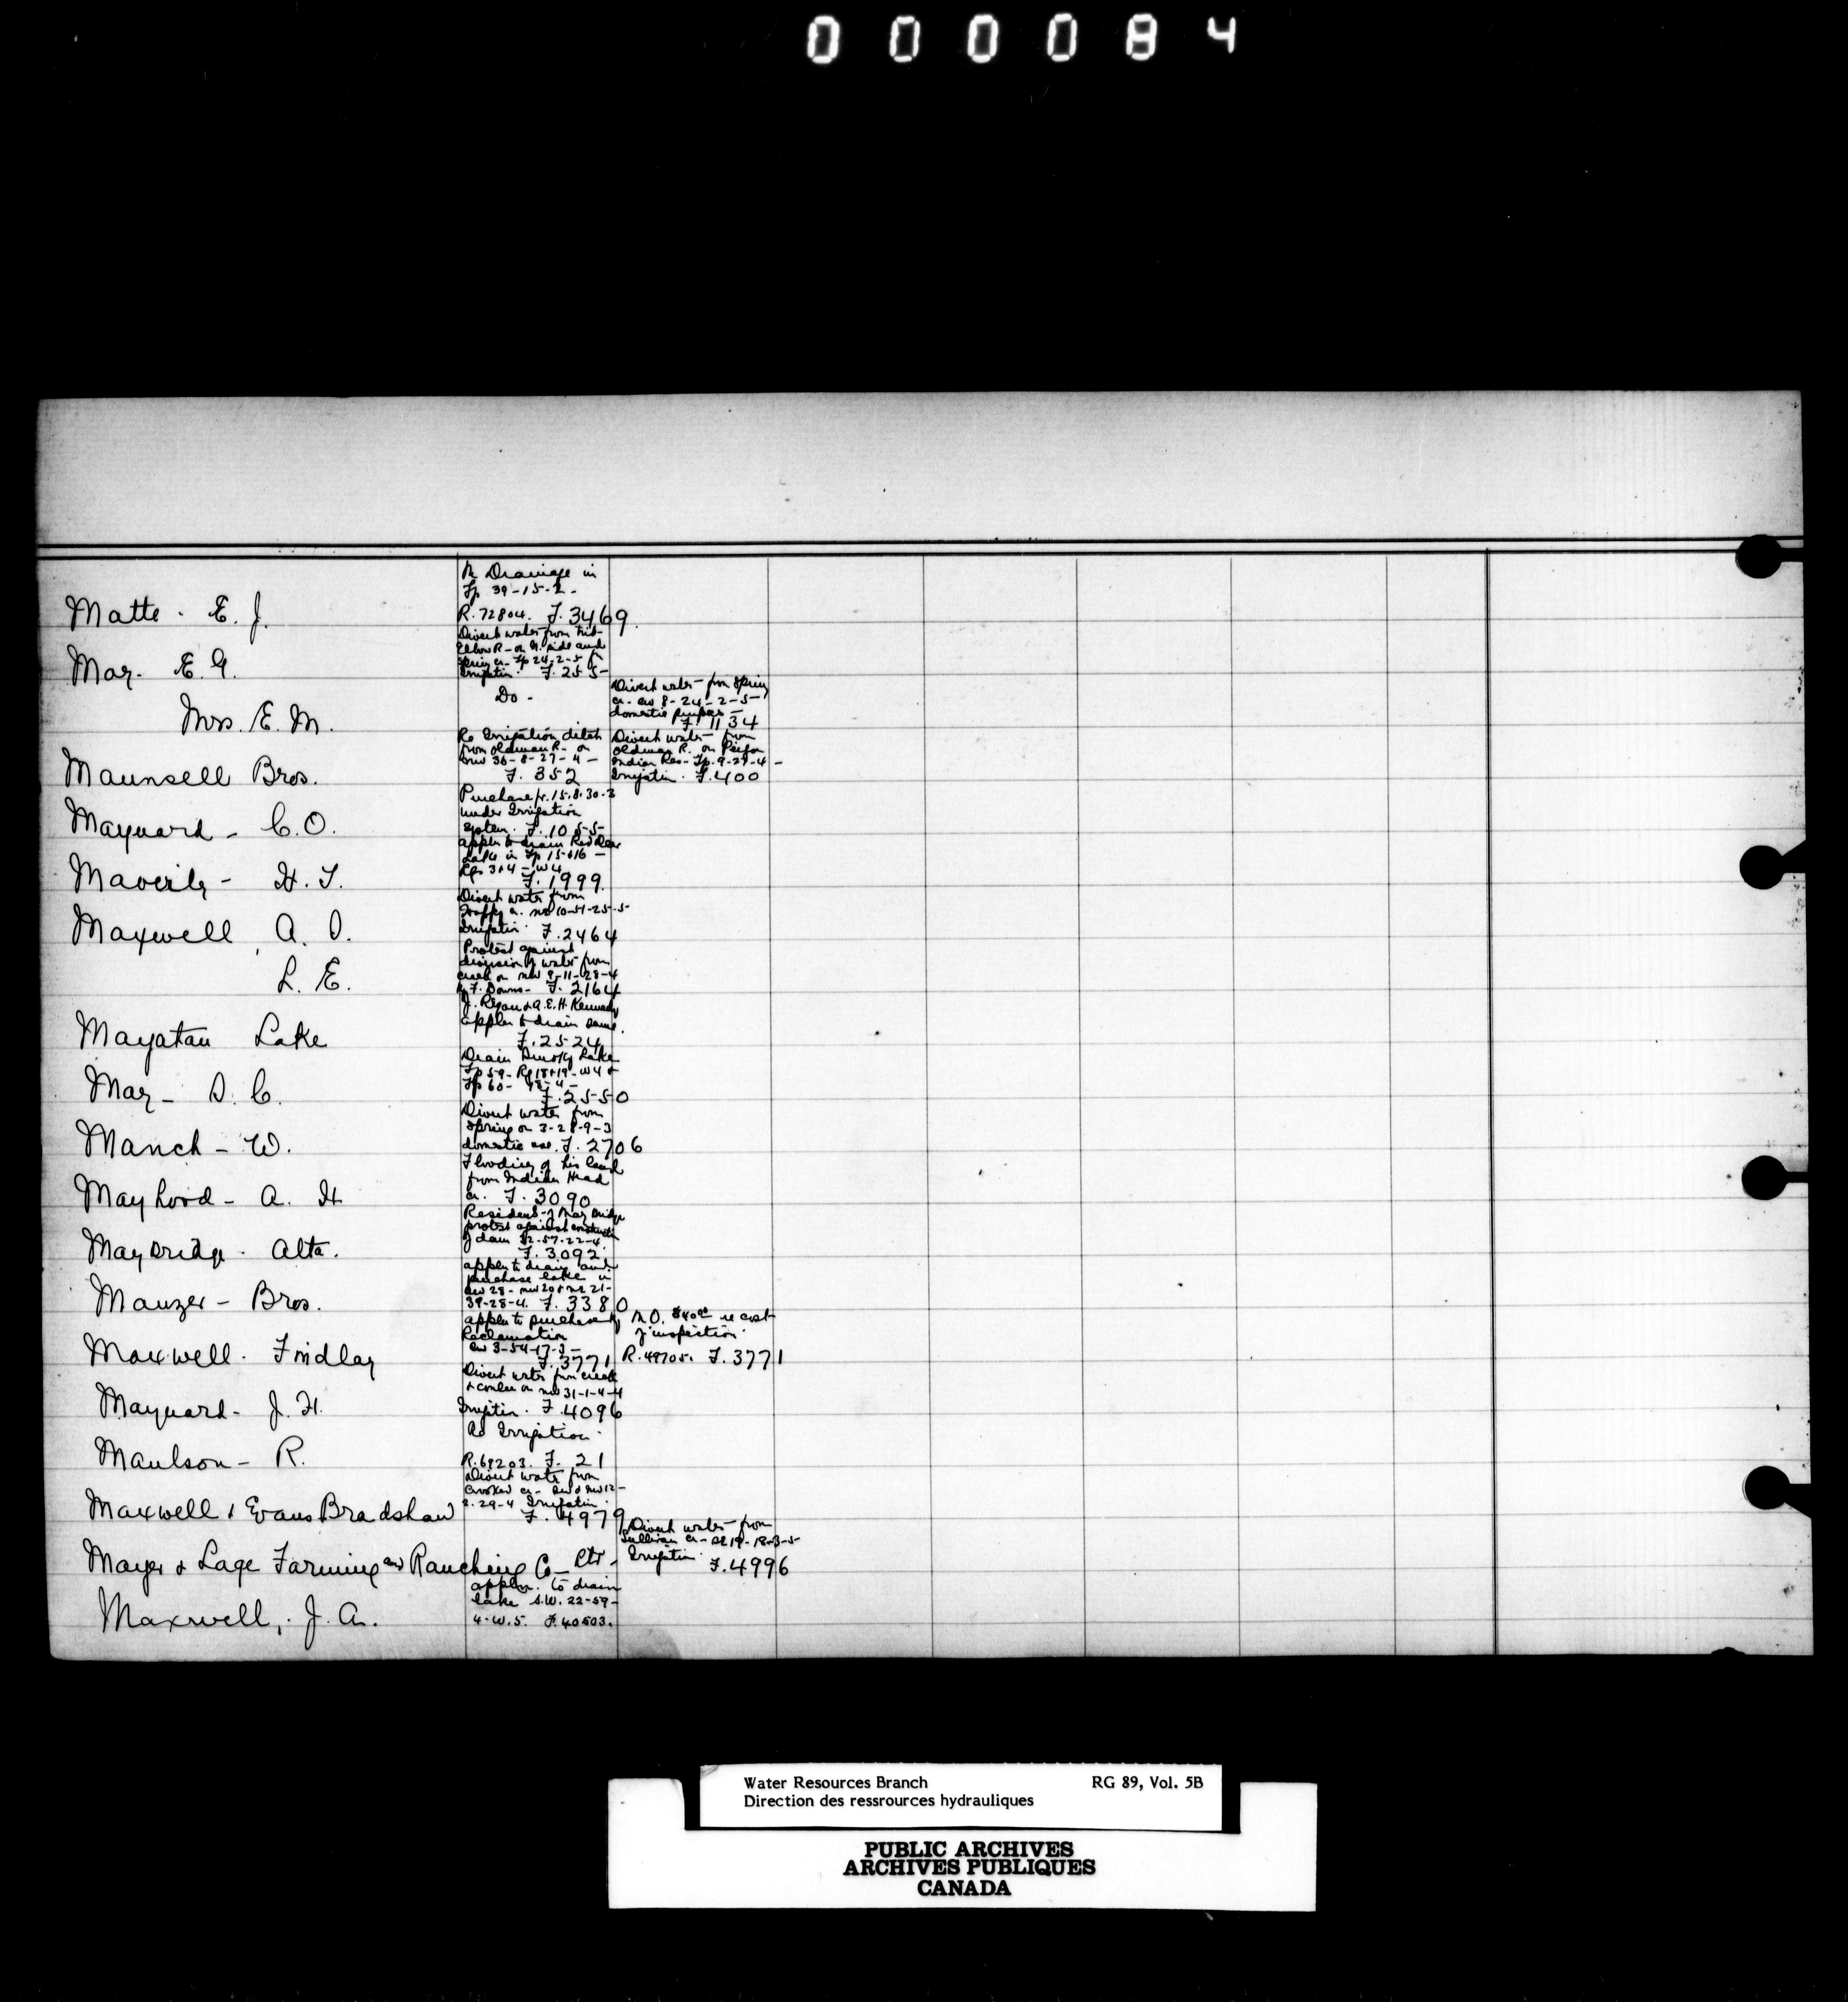 000084
Matte - E. J.
Re Drainage in
Tp. 39-15-2-
R. 72804. F. 3469.
May- E. G.
Divert water from trib-
Elbow R - on N. side and
Spring Cr - Tp 24-2-5 for
Irrigation. F. 255-
Mrs. E. M.
Do -
Divert water from Spring
Cr - SW 8-24-2-5-
domestic purposes -
F. 1134
Maunsell Bros.
Re Irrigation ditch
from Oldman R - on
NW 36-8-27-4-
F. 352
Divert water from
Oldman R. on Peigan
Indian Res - Tp. 9-27-4-
Irrigation. F. 400
Maynard - C. O.
Purchase fr. 15.8.30.3
under Irrigation
system. F. 1055-
H. T.
Appln to drain Red Deer
Lake in Tp 15+16 -
Rgs 3+4 - W4
F. 1999.
Maxwell A. D.
Divert water from
Cr. NE 10-51-25-5-
Irrigation. F. 2464
L. E.
Protest against
diversion of water from
creek on NW 9-11-28-4
by F. Downs - F. 2164
Mayatan Lake
J. Regan & A. E. H. Kennedy
Appln to drain same.
F. 2524
May - D. C.
Drain Smoky Lake
Tp 59- Rg 18+19- W4 &
Tp 60- 18-4-
F. 2550
Manch - W.
Divert water from
Spring on 3-28-9-3
domestic use. F. 2706
Mayhood - A. H
Flooding of his land
from Indian Head
Cr. F. 3090
Maybridge - Alta.
Residents of May Bridge
protest against construction
of dam 32-57-22-4.
F. 3092.
Manzer - Bros.
Appln to drain and
purchase lake in
SW 28 - NW 20 & NE 21-
39-28-4. F. 3380
Maxwell. Findlay
Appln to purchase by
Reclamation
SW 3-54-17-3-
F. 3771
M.O. $40.00 re cost
of inspection.
R. 49705. F. 3771
Maynard - J. H.
Divert water from creek
& coulee on NW 31-1-4-4
Irrigation. F. 4096
Maulson - R.
Re Irrigation.
R. 69203. F. 21
Maxwell & Evans Bradshaw
Divert water from
Crooked Cr - SW & NW 12-
2.29-4 Irrigation.
F. 4979
Mayer & Lage Farming and Ranching Co - Ltd -
Divert water from
Sullivan Cr - SE 19-18-3-5-
Irrigation. F. 4996
Maxwell, J. A.
Appln. to drain
lake S.W. 22-59-
4-W.5. F. 40503.
Water Resources Branch RG 89, Vol. 5B
Direction des ressrources hydrauliques
PUBLIC ARCHIVES
ARCHIVES PUBLIQUES
CANADA